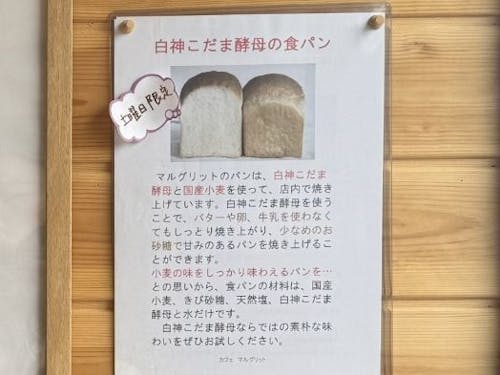 白神こだま酵母の食パン
土曜日限定
マルグリットのパンは、白神こだま
酵母と国産小麦を使って、店内で焼き
上げています。白神こだま酵母を使う
ことで、バターや卵、牛乳を使わなく
てもしっとり焼き上がり、少なめのお
砂糖で甘みのあるパンを焼き上げるこ
とができます。
小麦の味をしっかり味わえるパンを…
との思いから、食パンの材料は、国産
小麦、きび砂糖、天然塩、白神こだま
酵母と水だけです。
白神こだま酵母ならではの素朴な味
わいをぜひお試しください。
カフェ マルグリット